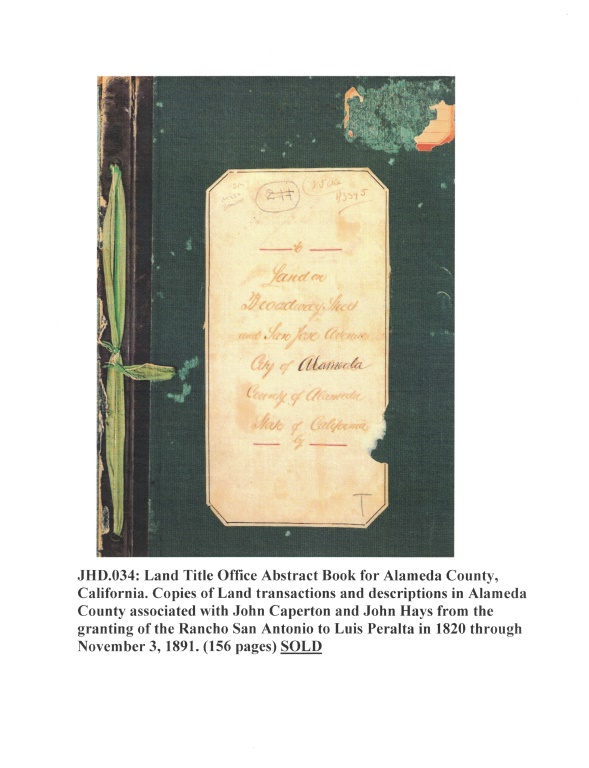 244
to
Land on
Broadway Street
and San Jose Avenue
City of Alameda
County of Alameda
State of California
by
T
JHD.034: Land Title Office Abstract Book for Alameda County,
California. Copies of Land transactions and descriptions in Alameda
County associated with John Caperton and John Hays from the
granting of the Rancho San Antonio to Luis Peralta in 1820 through
November 3, 1891. (156 pages) SOLD